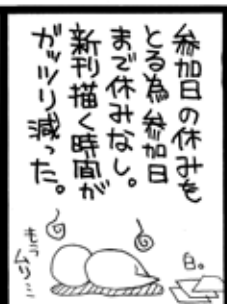 参加日の休みを
とる為参加日
まで休みなし。
新刊描く時間が
ガッツリ減った。
白。
もうムリ…